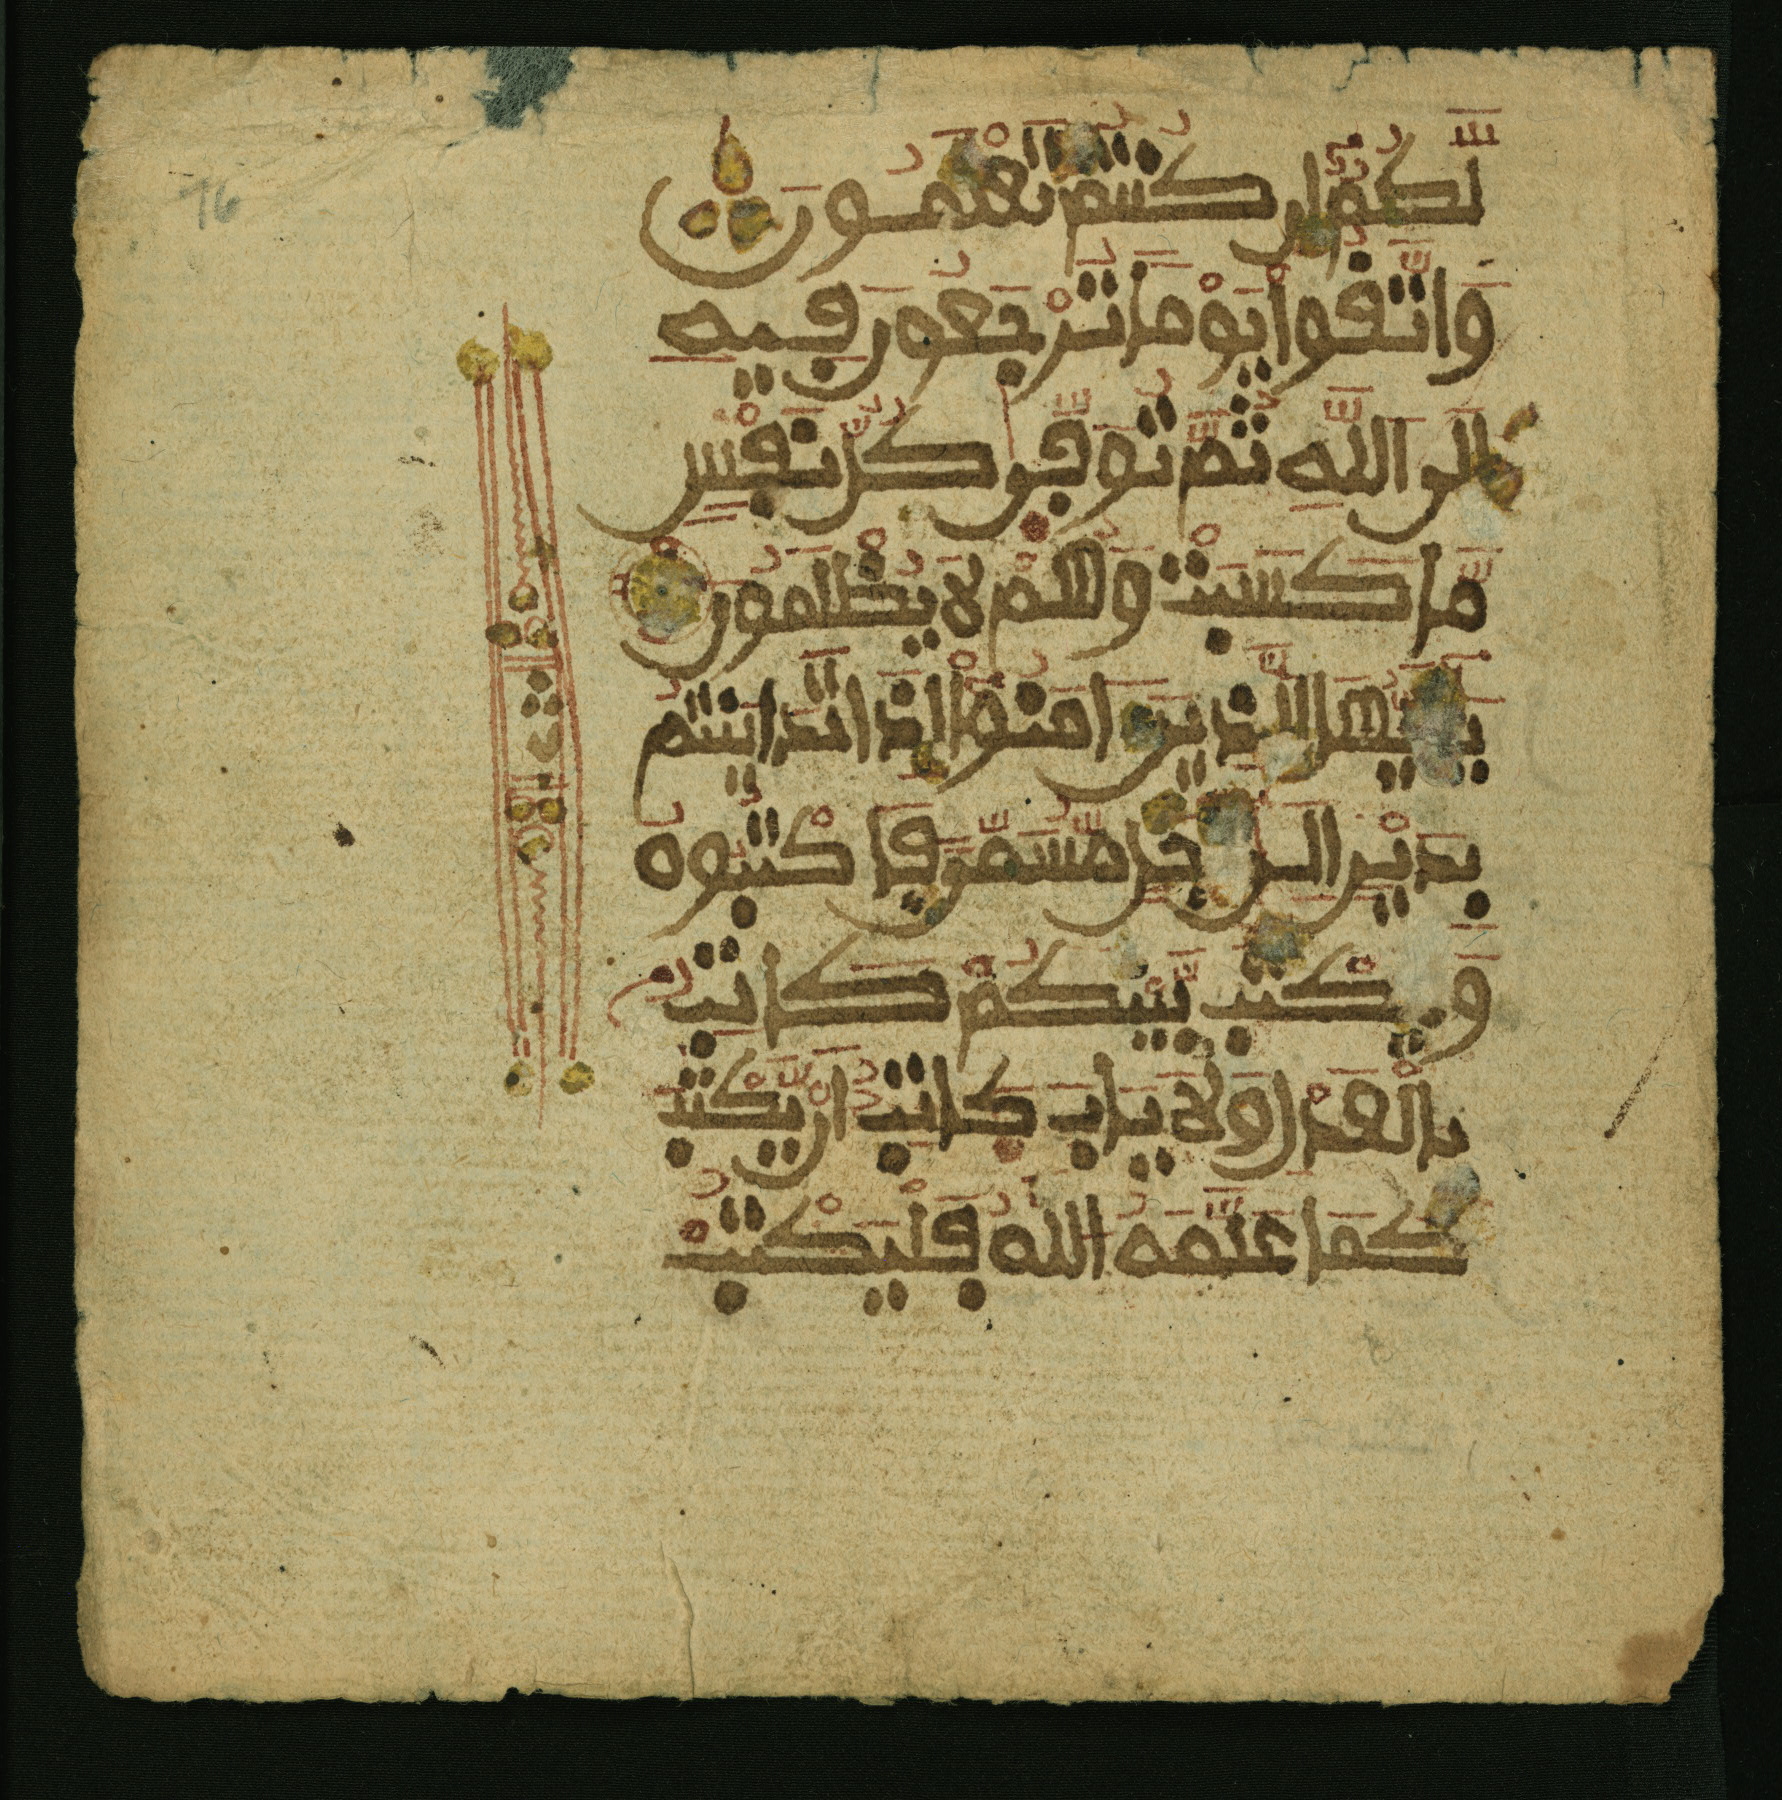 76
لكم إن كنتم تعلمون
واتقوا يوما ترجعون فيه
إلى الله ثم توفى كل نفس
ما كسبت وهم لا يظلمون
يأيها الذين ءامنوا إذا تداينتم
بدين إلى أجل مسمى فاكتبوه
وليكتب بينكم كاتب
بالعدل ولا ياب كاتب أن يكتب
كما علمه الله فليكتب